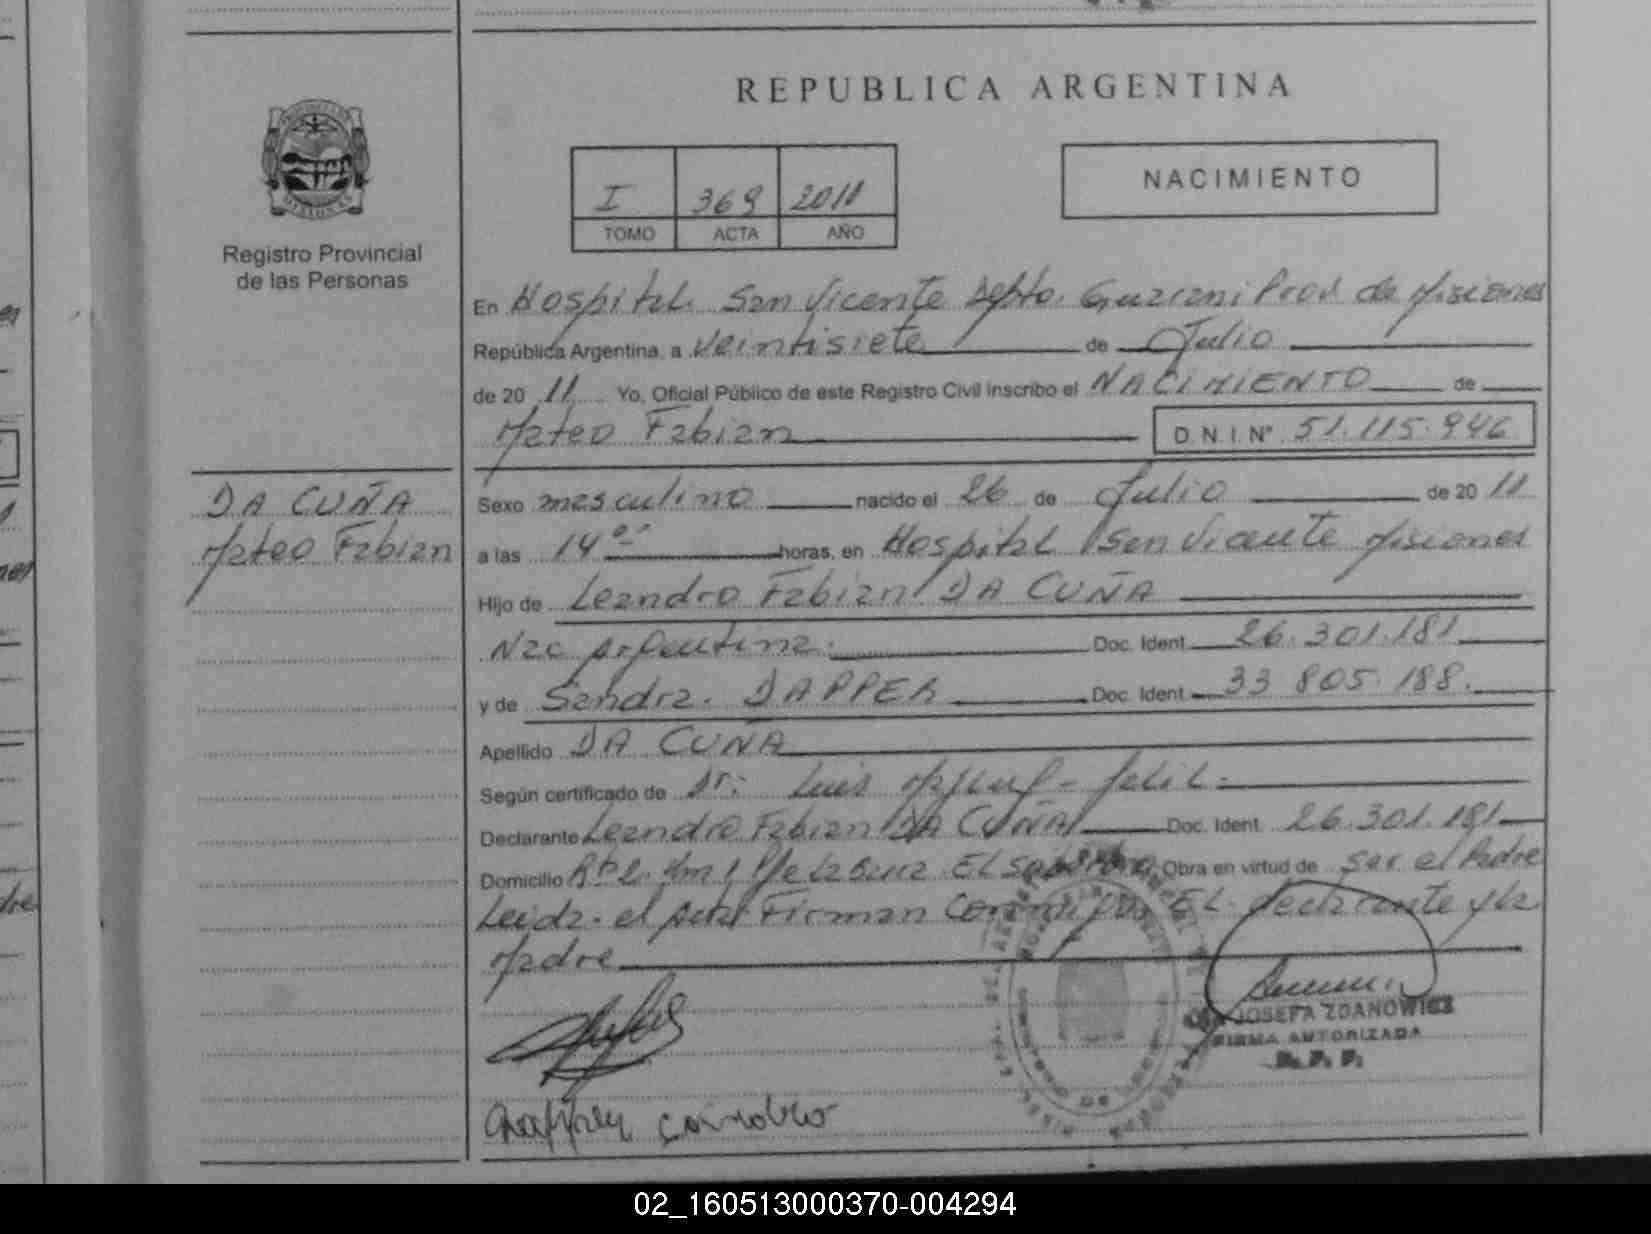 REPUBLICA ARGENTINA
I 369 2011
TOMO ACTA AÑO
NACIMIENTO
Registro Provincial
de las Personas
En Hospital San Vicente Depto. Guarani Prov de Misiones
República Argentina, a veintisiete de Julio
de 20 11 Yo, Oficial Público de este Registro Civil inscribo el NACIMIENTO de
Mateo Fabian D.N.I. Nº 51.115.946
DA CUÑA
Mateo Fabian
Sexo masculino nacido el 26 de Julio de 20 11
a las 14 horas, en Hospital San Vicente Misiones
Hijo de Leandro Fabian DA CUÑA
Nac Argentina. Doc. Ident. 26.301.181
y de Sandra. DAPPER Doc. Ident. 33 805.188.
Apellido DA CUÑA
Según certificado de Dr: Luis
Declarante Leandro Fabian DA CUÑA Doc. Ident. 26.301.181
Domicilio El Obra en virtud de ser el Padre
Leida. el Acta Firman El declarante y la
Madre
JOSEFA ZDANOWICZ
FIRMA AUTORIZADA
02_160513000370-004294